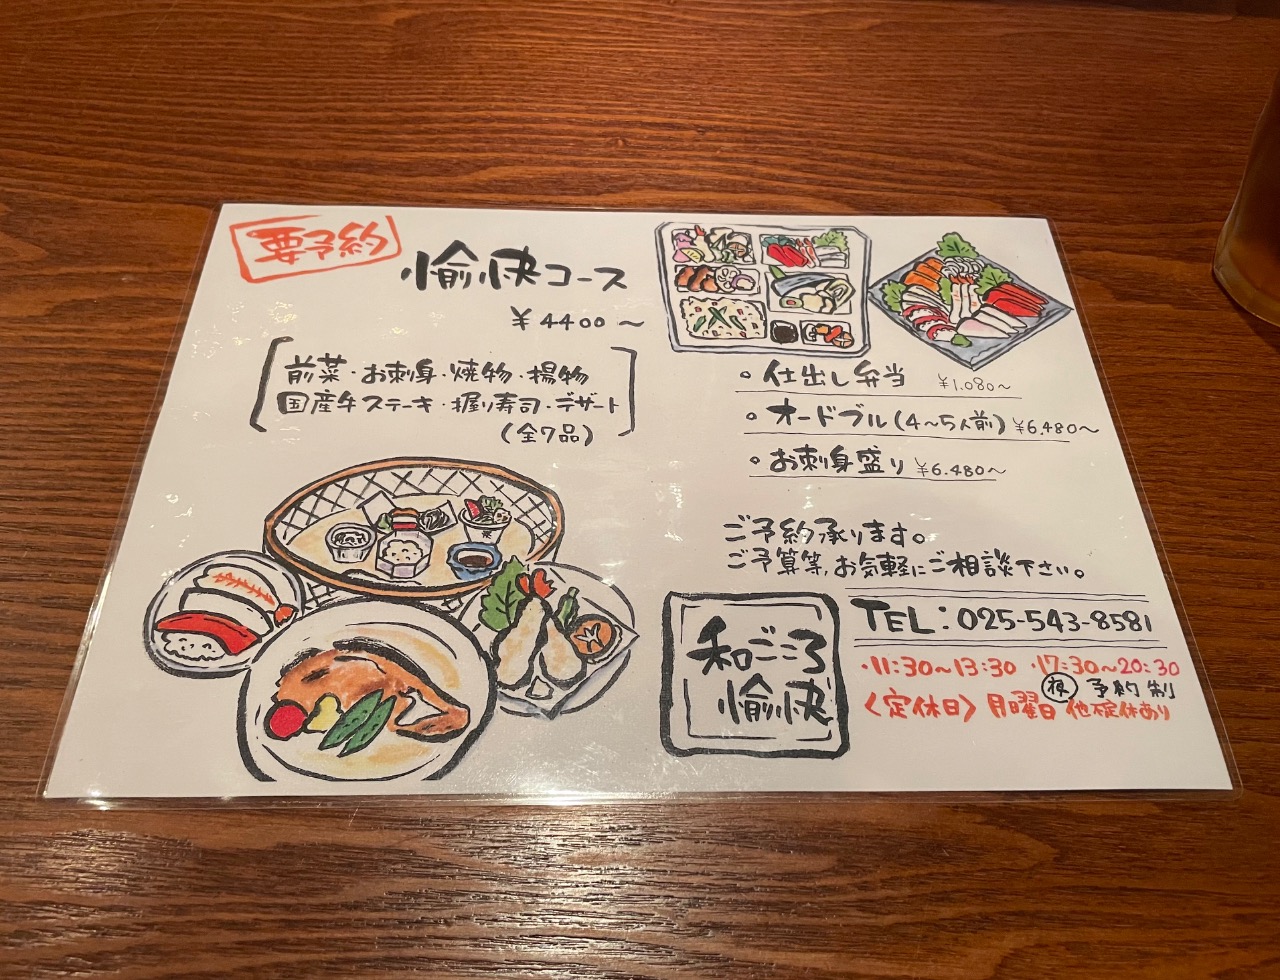 要予約
愉快コース
¥4400〜
前菜・お刺身・焼物・揚物
国産牛ステーキ・握り寿司・デザート
(全7品)
。仕出し弁当 ¥1.080〜
。オードブル(4〜5人前) ¥6.480〜
。お刺身盛り ¥6.480〜
ご予約承ります。
ご予算等、お気軽にご相談下さい。
和ごころ
愉快
TEL:025-543-8581
・11:30〜13:30 ・17:30〜20:30
夜 予約制
〈定休日〉月曜日 他不定休あり